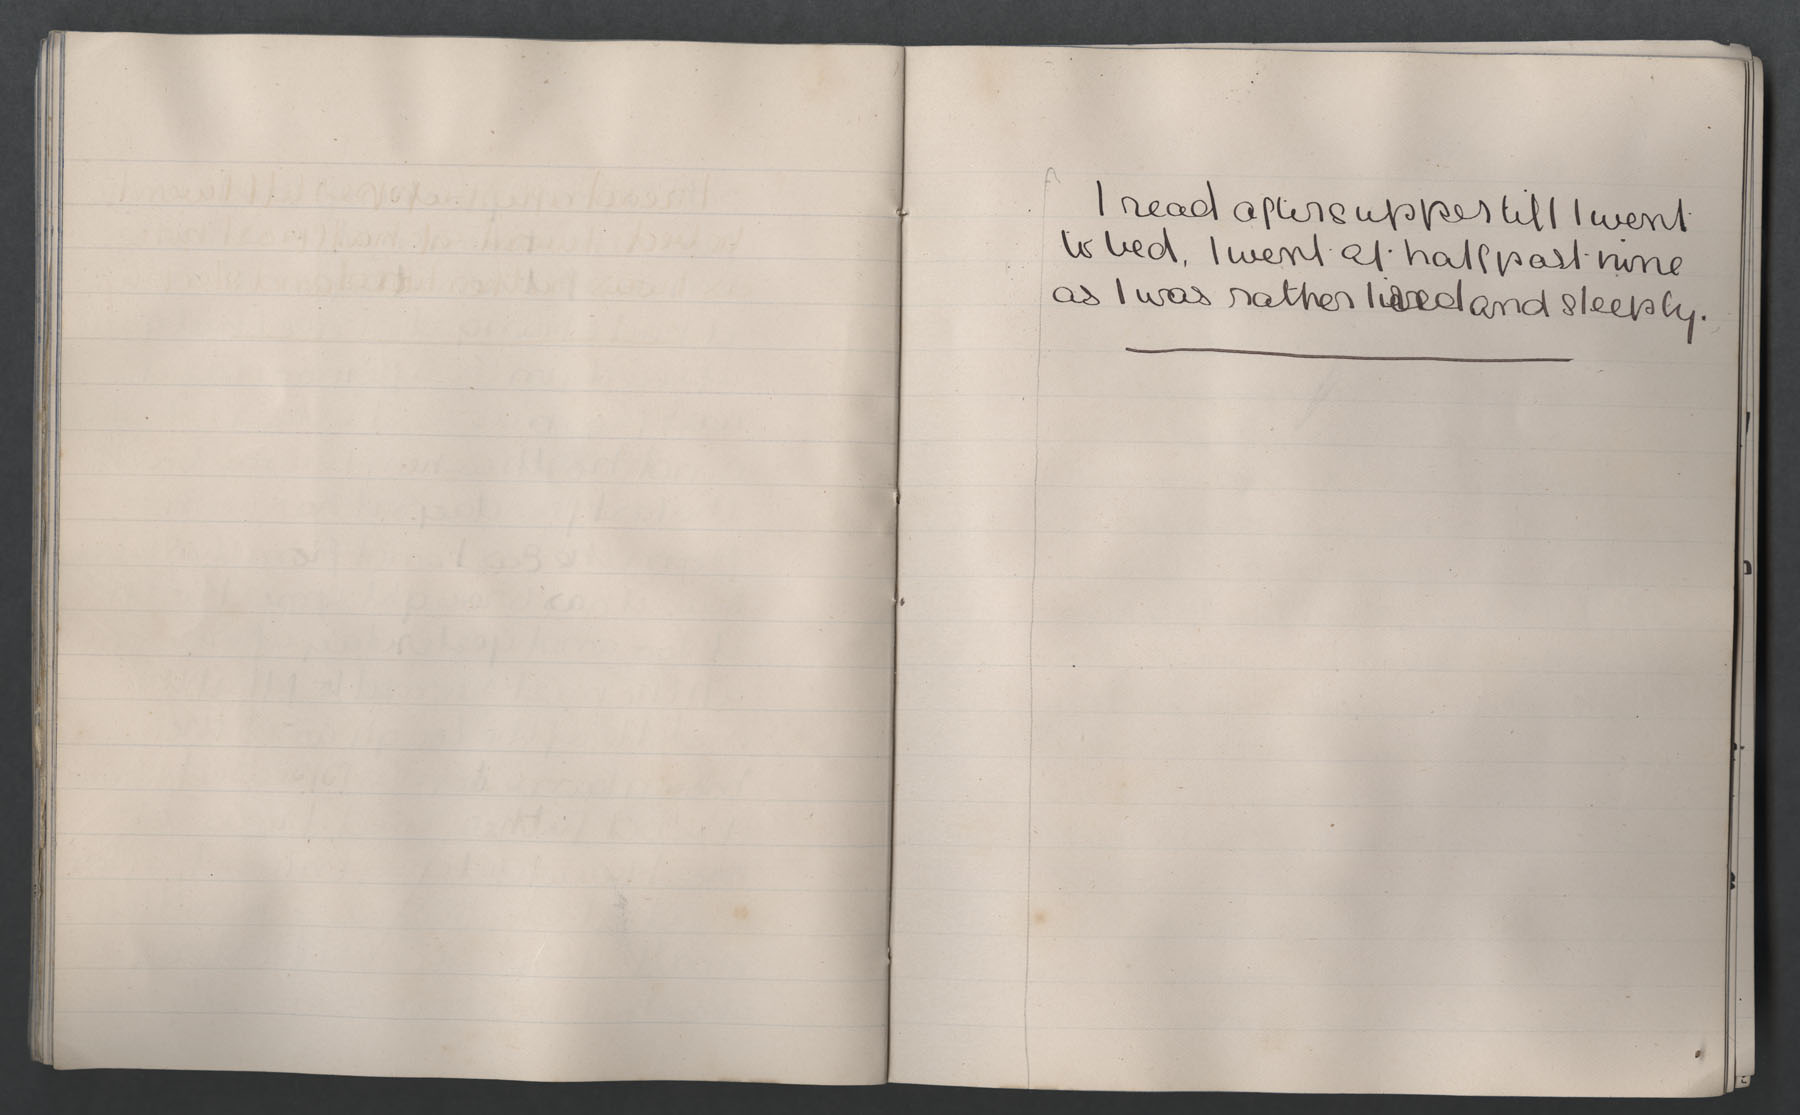 I read after supper till I went
to bed, I went at half past nine
as I was rather tired and sleepy.